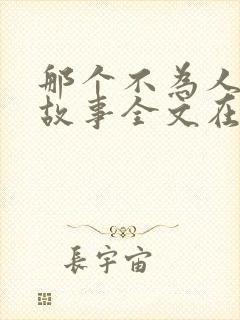 那个不为人
故事全文在
長宇宙